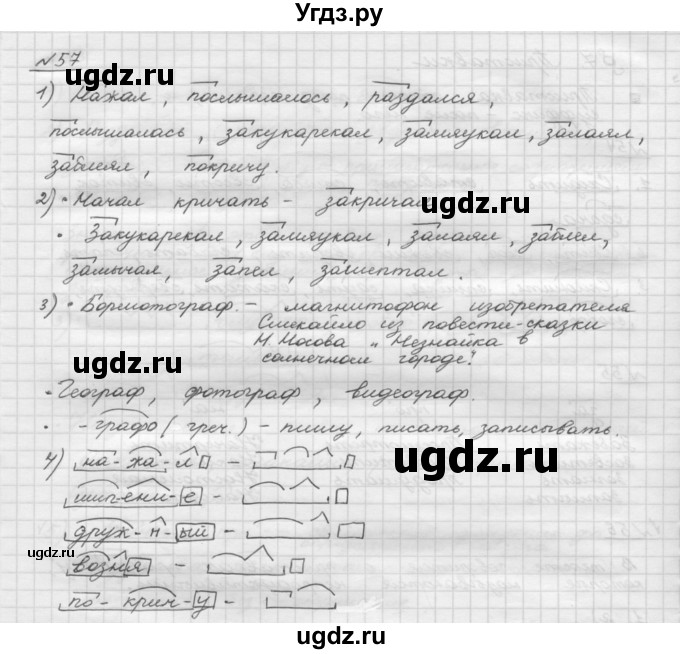 Угдз.ру
№57
ugdz.ru
ugdz.ru
1) Нажал, послышалось, раздался,
послышалась, закукарекал, замяукал, залаял,
заблеял, покричу.
2) • Начал кричать - закричал
ugdz.ru
• Закукарекал, замяукал, залаял, заблел,
замычал, запел, зашептал.
3) • Бормотограф. - магнитофон изобретателя
Смекайло из повести-сказки
Н. Носова „Незнайка в
солнечном городе".
ugdz.ru
• Географ, фотограф, видеограф.
• -графо (греч.) - пишу, писать, записывать.
4) на-жа-л
ugdz.ru
шип-ени-е
друж-н-ый
ugdz.ru
ugdz.ru
возня
по-крич-у
ugdz.ru
ugdz.ru